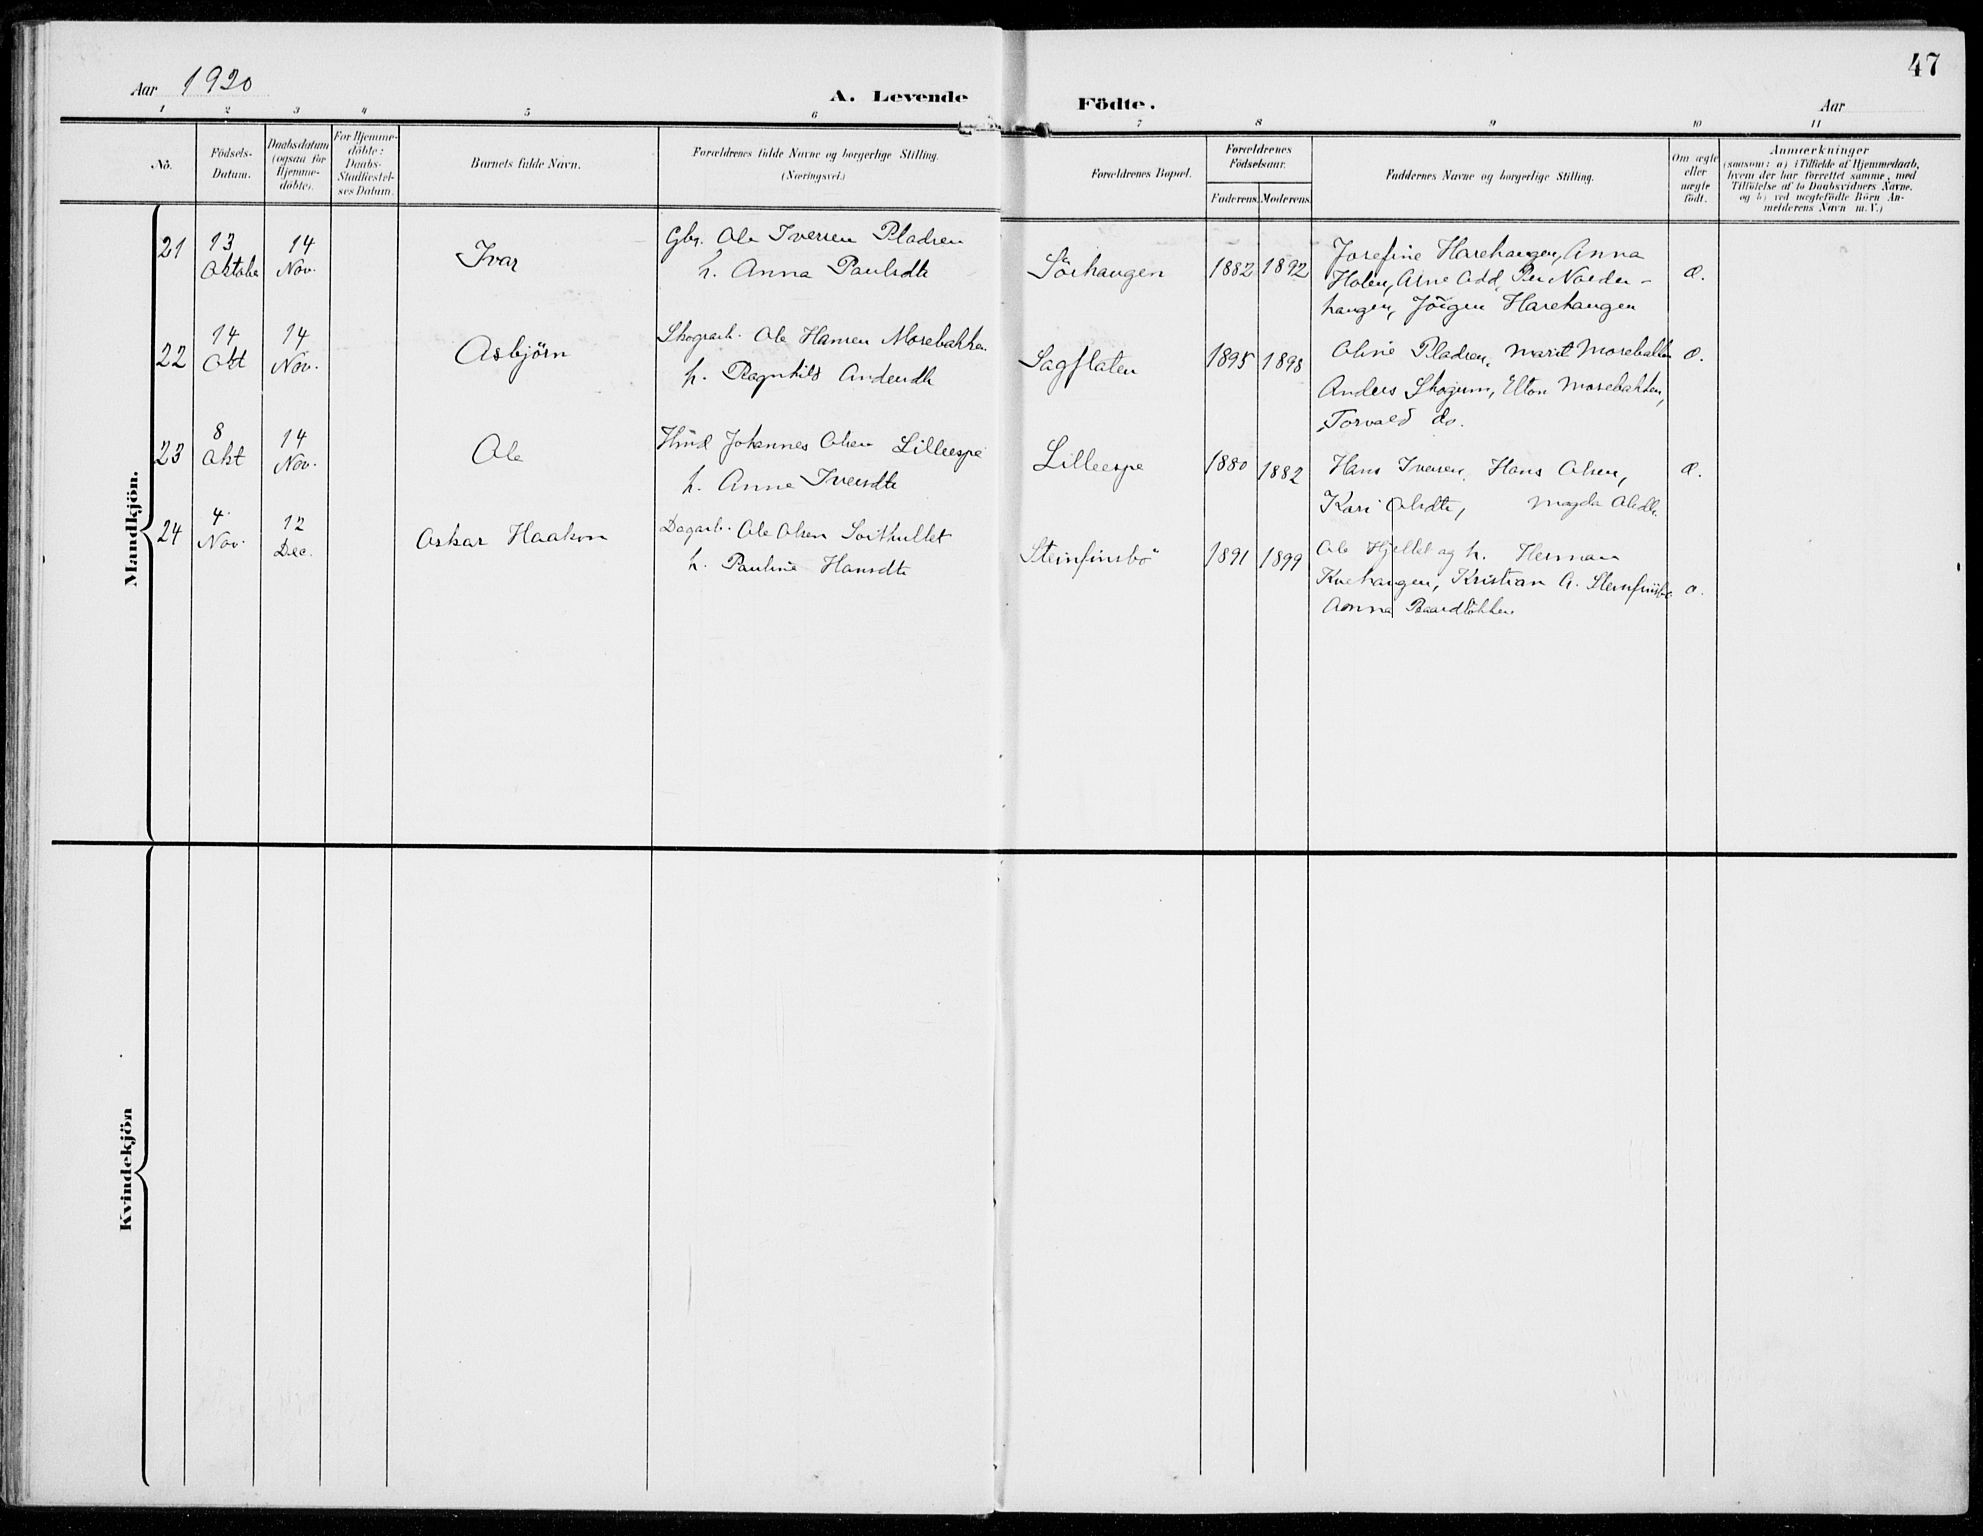 47
Aar 1920
A. Levende Födte.
Aar
1 2 3 4 5 6 7 8 9 10 11
No.
Födsels-
Datum.
Daabsdatum
(ogsaa for
Hjemme-
döbte).
For Hjemme-
döbte:
Daabs-
Stadfæstel-
ses Datum.
Barnets fulde Navn.
Forældrenes fulde Navne og borgerlige Stilling.
(Næringsvei.)
Forældrenes Bopæl.
Forældrenes
Födselsaar.
Faderens. Moderens.
Faddernes Navne og borgerlige Stilling.
Om ægte
eller
uægte
födt.
Anmærkninger
(saasom: a) i Tilfælde af Hjemmedaab,
hvem der har forrettet samme, med
Tilföielse af to Daabsvidners Navne,
og b) ved uægtefödte Börn An-
melderens Navn m. V.)
Mandkjön.
21
13
Oktober
14
Nov.
Ivar
Gbr. Ole Iversen Pladsen
h. Anna Paulsdtr
Sörhaugen
1882 1892
Josefine Harehaugen, Anna
Holen, Arne Odd, Per Norder-
haugen, Jörgen Harehaugen
æ.
22
14
Okt
14
Nov.
Asbjörn
Skogarb. Ole Hansen Morebakken
h. Ragnhild Andersdtr
Sagflaten
1895 1898
Oline Pladsen, Marit Morebakken
Anders Skogum, Elton Morebakken,
Torvald do.
æ.
23
8
Okt
14
Nov.
Ole
Hmd Johannes Olsen Lilleespe
h. Anne Iversdtr
Lilleespe
1880 1882
Hans Iversen, Hans Olsen,
Kari Olsdtr, Magda Olsdtr.
æ.
24
4
Nov.
12
Dec.
Oskar Haakon
Dagarb. Ole Olsen
h. Pauline Hansdtr
Steinfinsbö
1891 1899
Ole Hjellet og h. Herman
Kvehaugen, Kristian A. Steinfinsbö
Anna Baardlökken
æ.
Kvindekjön